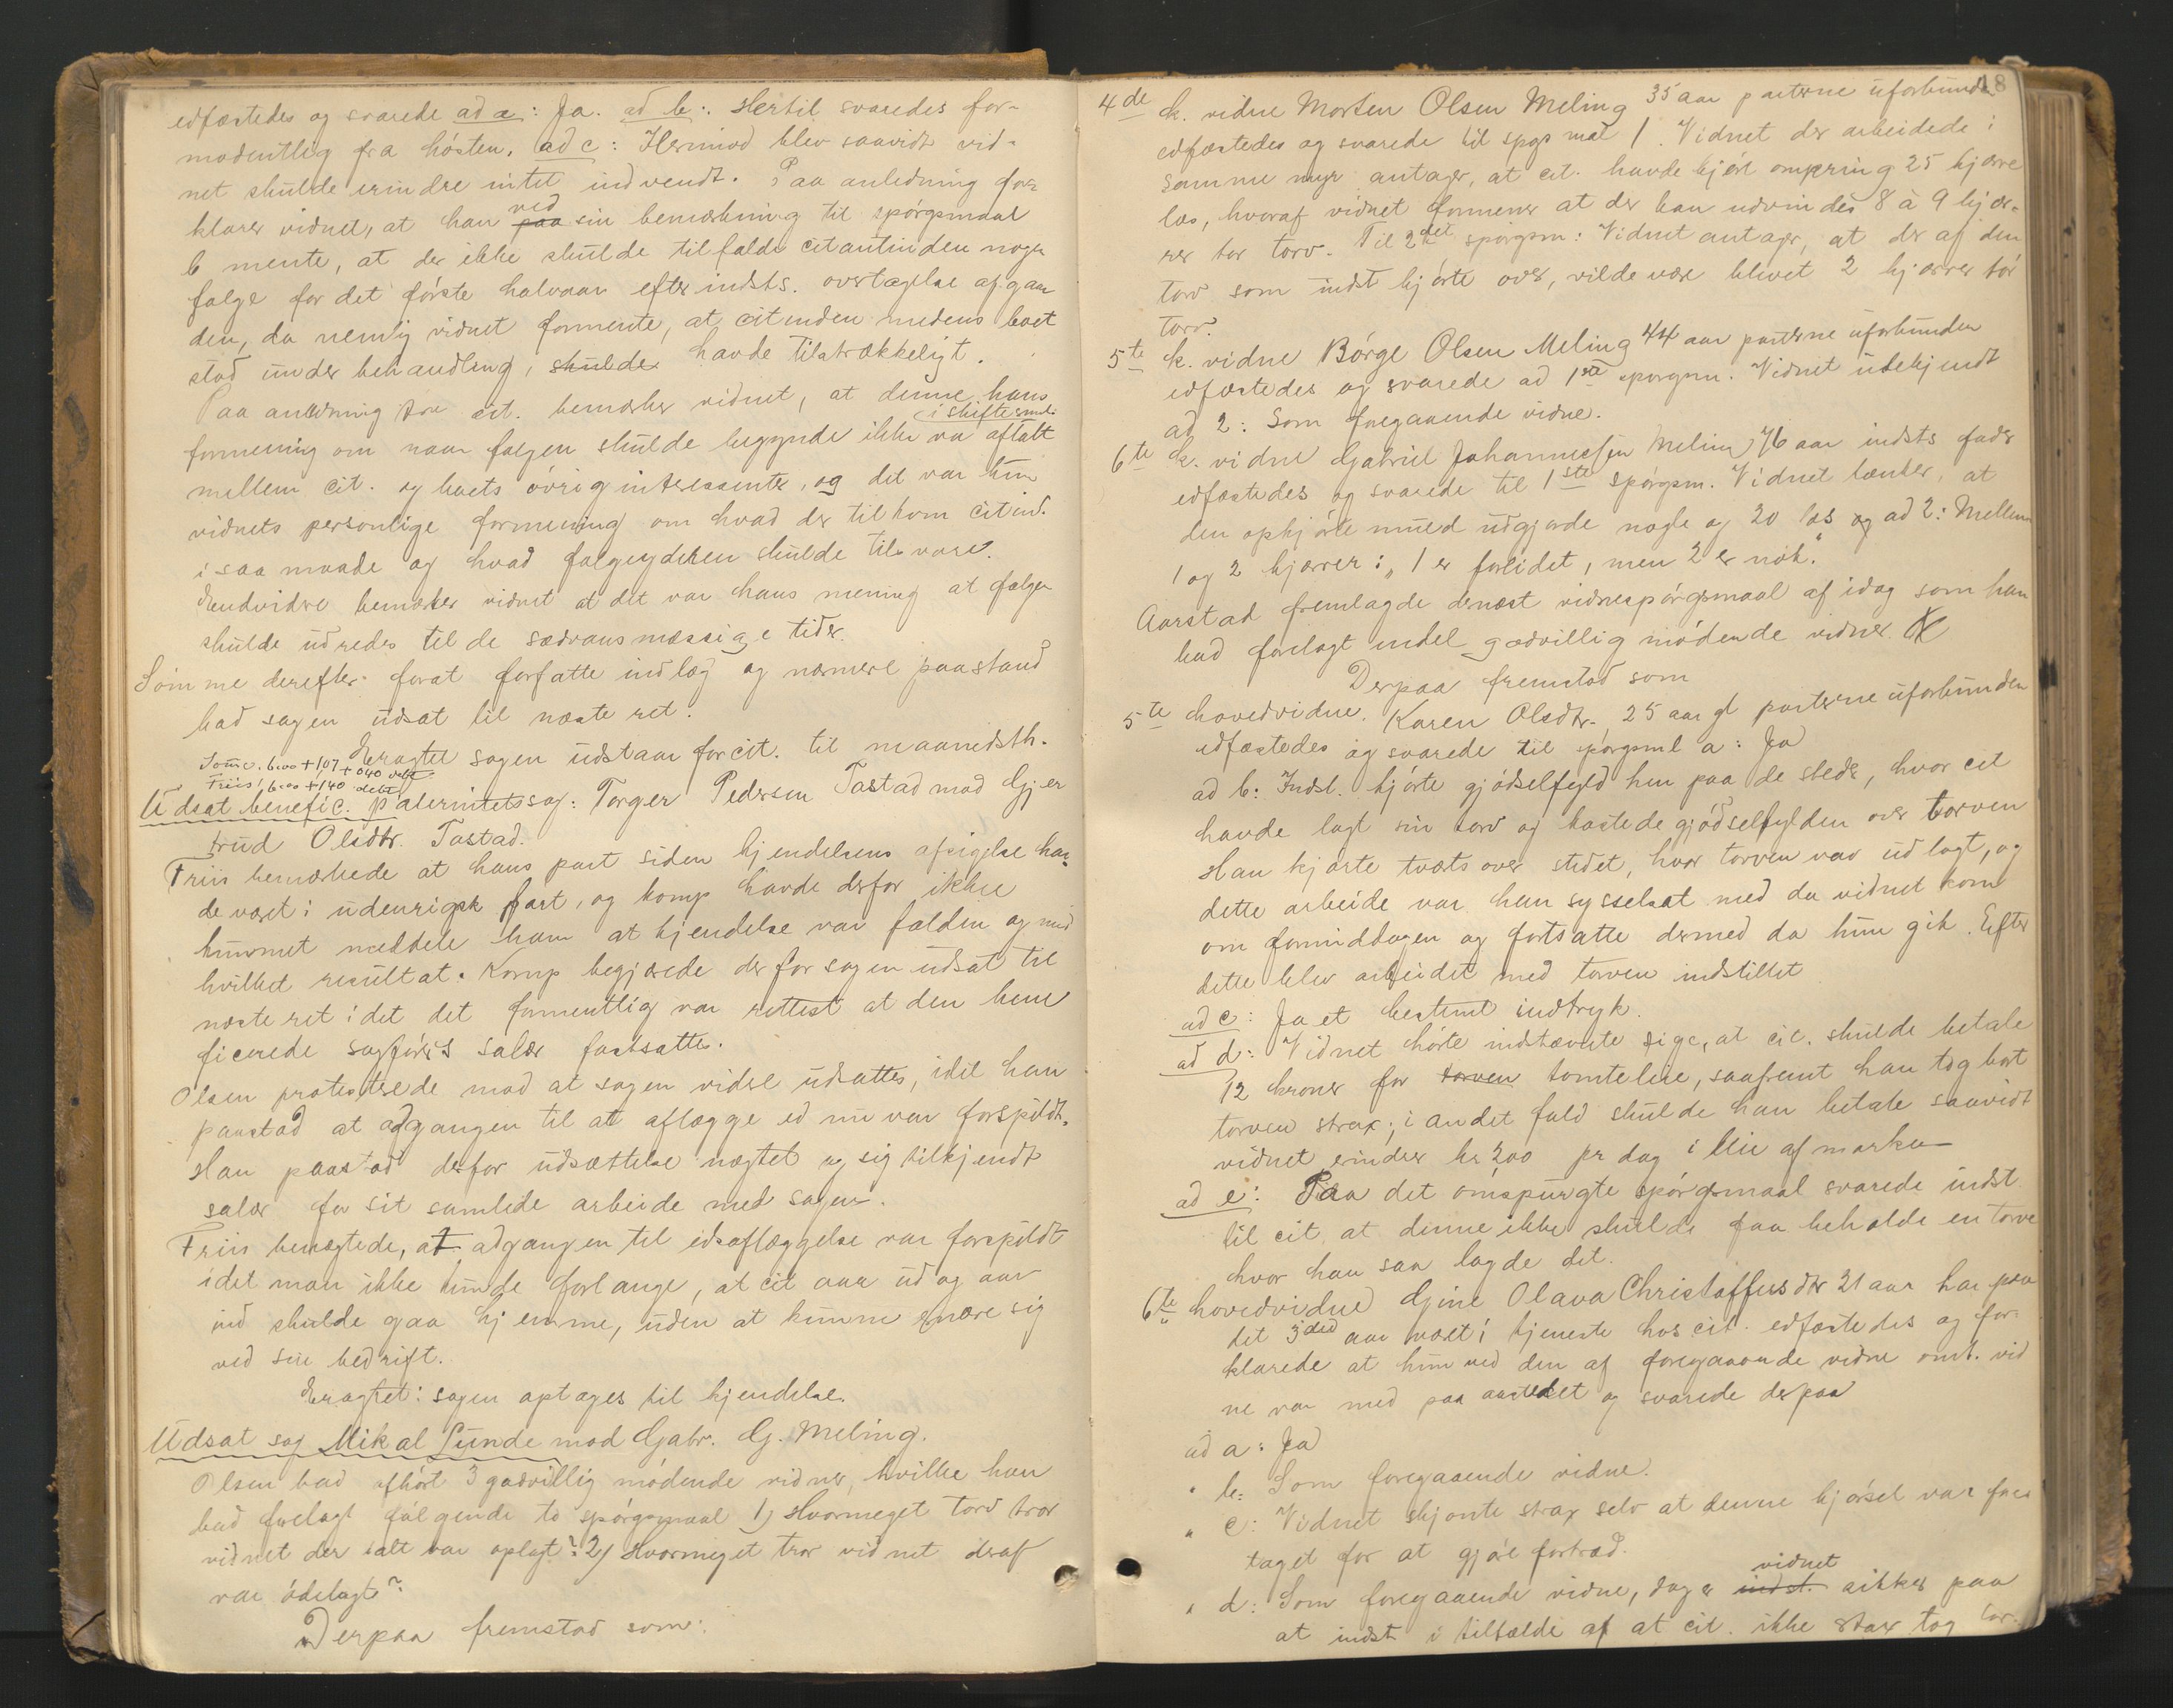 edfæstedes og svarede ad a: Ja. ad b: Hertil svaredes for-
modentlig fra hösten. ad c: Herimod blev saavidt vid-
net skulde erindre intet indvendt. Paa anledning for
klarer vidnet, at han paa ved sin bemærkning til spörgsmaal
b mente, at der ikke skulde tilfalde citantinden nogen
følge for det förste halvaar efter indsts. overtagelse af gaar
den, da nemlig vidnet formente, at citinden medens boet
stod under behandling, skulde havde tilstrækkeligt.
Paa anledning fra cit. bemærker vidnet, at denne hans
formening om naar følgen skulde begynde ikke var aftalt i skiftesml.
mellem cit. og boets övrig interessenter, og det var kun
vidnets personlige formening om hvad der tilkom citind.
i saa maade og hvad følgeyderen skulde tilsvare.
Endvidere bemærker vidnet at det var hans mening at følgen
skulde udredes til de sædvansmæssige tider.
Somme derefter forat forfatte indlæg og nærmere paastand
bad sagen udsat til næste ret.
Eragtet sagen udstaar for cit. til maanedsth.
Somme. 6.00 + 107 + 040
Friis! 6.00 + 140
Udsat benefic. paternitetssag: Torger Pedersen Tastad mod Gjer
trud Olsdtr. Tastad.
Friis bemærkede at hans part siden kjendelsens afsigelse hav
de været i udenrigsk fart, og komp havde derfor ikke
kunnet meddele ham at kjendelse var falden og med
hvilket resultat. Komp begjærede derfor sagen udsat til
næste ret idet det formentlig var rettest at den bene
ficerede sagförers salær fastsattes.
Olsen protesterede mod at sagen videre udsattes, idet han
paastod at adgangen til at aflægge ed nu var forspildt.
Han paastod derfor udsættelse nægtet og sig tilkjendt
salær for sit samlede arbeide med sagen.
Friis benægtede, at adgangen til edsaflæggelse var forspildt
idet man ikke kunde forlange, at cit aar ud og aar
ind skulde gaa hjemme, uden at kunne ernære sig
ved sin bedrift.
Eragtet: sagen optages til kjendelse.
Udsat sag Mikal Lunde mod Gabr. G. Meling.
Olsen bad afhört 3 godvillig mödende vidner, hvilke han
bad forelagt fölgende to spörgsmaal 1) Hvormeget torv tror
vidnet der ialt var oplagt? 2) Hvormeget tror vidnet deraf
var ödelagt?
Derpaa fremstod som:
18
4de k. vidne Morten Olsen Meling 35 aar parterne uforbunden
edfæstedes og svarede til spgsmål 1. Vidnet der arbeidede i
samme myr antager, at cit. havde kjört omkring 25 kjærre
læs, hvoraf vidnet formener at der kan udvindes 8 à 9 kjær-
rer tör torv. Til 2det spörgsm: Vidnet antager, at der af den
torv som indst kjörte over, vilde være blevet 2 kjærrer tör
torv.
5te k. vidne Börge Olsen Meling 44 aar parterne uforbunden
edfæstedes og svarede ad 1ste spörgsm. Vidnet ubekjendt
ad 2: Som foregaaende vidne.
6te k. vidne Gabriel Johannessen Meling 76 aar indsts fader
edfæstedes og svarede til 1ste spörgsm. Vidnet tænker, at
den opkjörte mued udgjorde nogle og 20 læs og ad 2: Mellem
1 og 2 kjærrer: „1 er forlidet, men 2 er nok."
Aarstad fremlagde dernæst vidnespörgsmaal af idag som han
bad forelagt endel godvillig mödende vidner.
Derpaa fremstod som
5te hovedvidne. Karen Olsdtr. 25 aar gl parterne uforbunden
edfæstedes og svarede til spörgsml a: Ja
ad b: Indst. kjörte gjödselfyld hen paa de steder, hvor cit
havde lagt sin torv og kastede gjödselfylden over torven
Han kjörte tværs over stedet, hvor torven var udlagt, og
dette arbeide var han sysselsat med da vidnet kom
om formiddagen og fortsatte dermed da hun gik. Efter
dette blev arbeidet med torven indstillet
ad c: Ja et bestemt indtryk.
ad d: Vidnet hörte indstævnte sige, at cit. skulde betale
12 kroner for torven tomteleie, saafremt han tog bort
torven strax; i andet fald skulde han betale saavidt
vidnet erindrer kr 200 pr dag i leie af marken
ad e: Paa det omspurgte spörgsmaal svarede indst.
til cit, at denne ikke skulde faa beholde en torv
hvor han saa lagde det.
6te hovedvidne Gjine Olava Christoffersdtr 21 aar har paa
det 3die aar været i tjeneste hos cit. edfæstedes og for-
klarede at hun ved den af foregaaende vidne omt. vid
ne var med paa aastedet og svarede derpaa
ad a: Ja
" b: Som foregaaende vidne.
" c: Vidnet skjönte strax selv at denne kjörsel var fore
taget for at gjöre fortræd.
" d: Som foregaaende vidne, dog er indst. vidnet sikker paa
at indst i tilfælde af at cit. ikke strax tog tor-